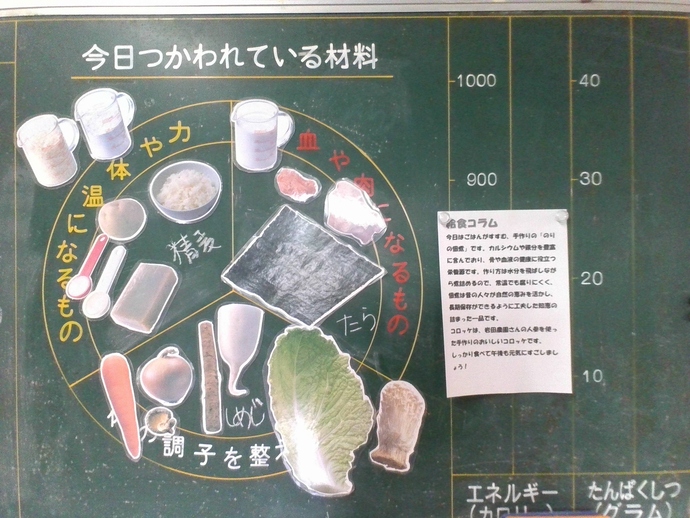 今日つかわれている材料
体や力
温になるもの
血や肉になるもの
精麦
たら
しめじ
調子を整
1000
900
40
30
20
10
エネルギー
(カロリー)
たんぱくしつ
(グラム)
給食コラム
今日はごはんがすすむ、手作りの「のり
の佃煮」です。カルシウムや鉄分を豊富
に含んでおり、骨や血液の健康に役立つ
栄養題です。作り方は水分を飛ばしなが
ら煮詰めるので、常温でも腐りにくく、
佃煮は昔の人々が自然の恵みを活かし、
長期保存ができるように工夫した知恵の
詰まった一品です。
コロッケは、岩田農園さんの人参を使っ
た手作りのおいしいコロッケです。
しっかり食べて午後も元気にすごしまし
ょう！